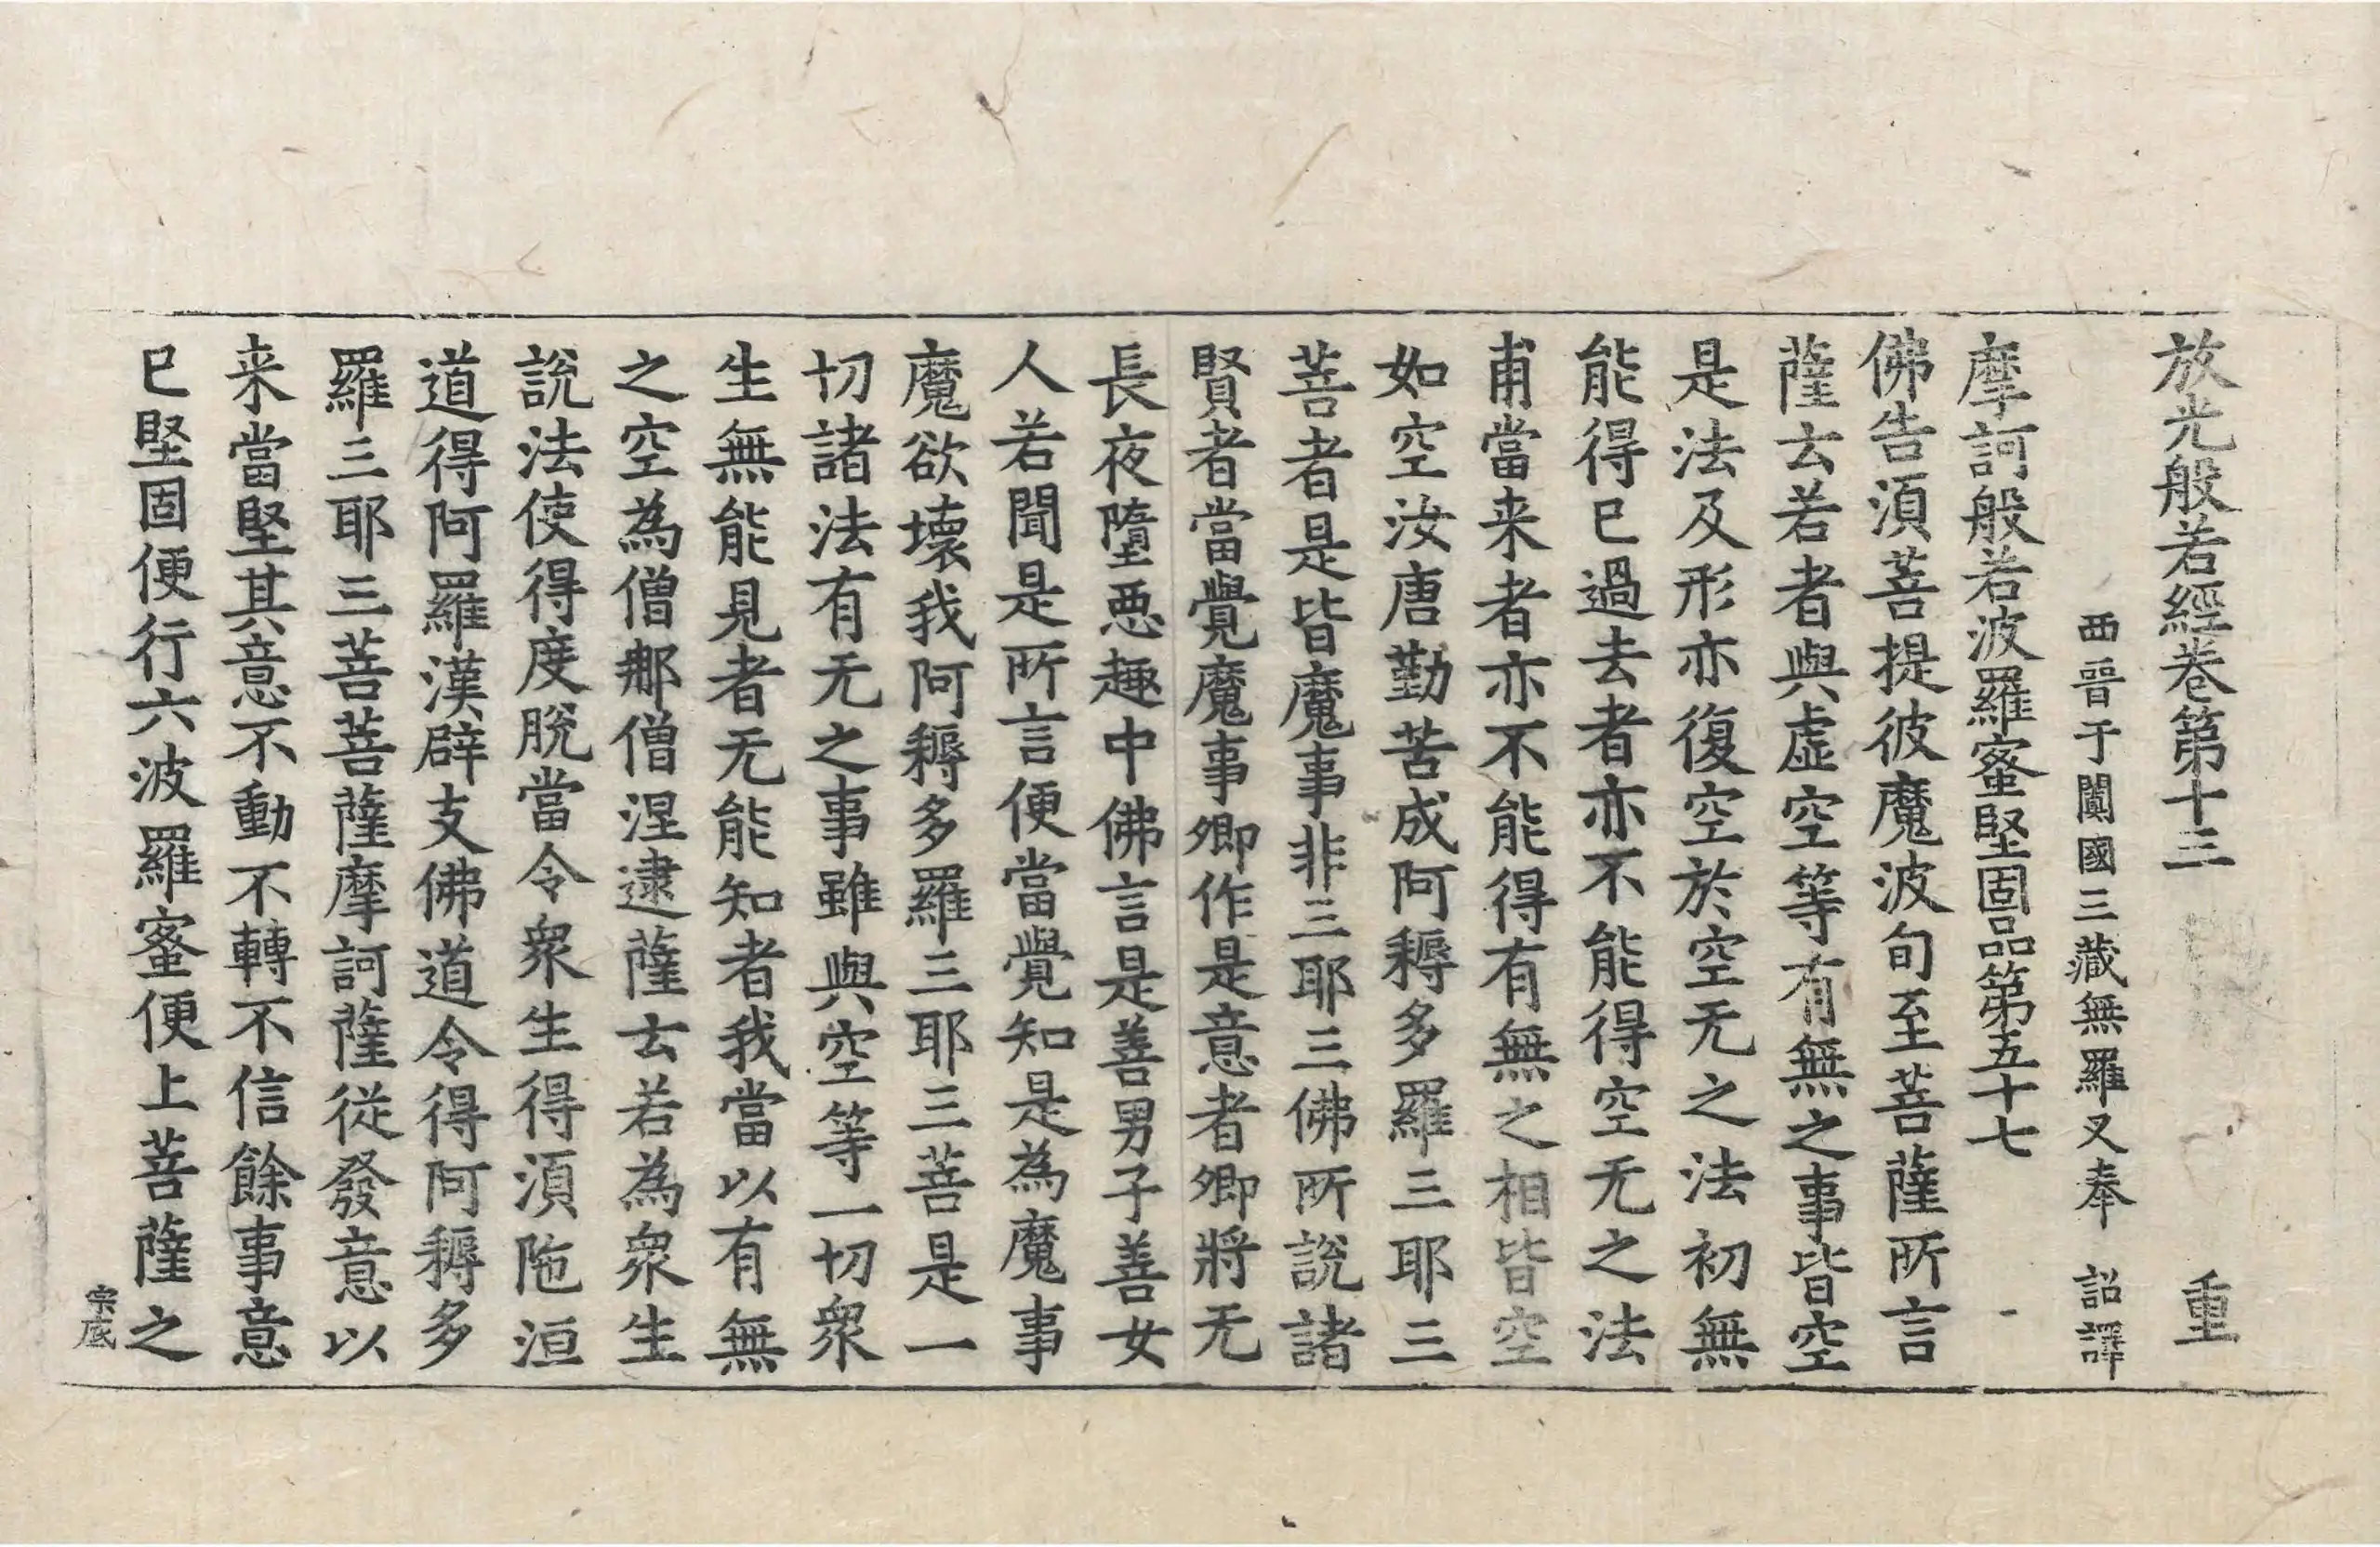 放光般若經卷第十三 重
西晉于闐國三藏無羅叉奉 詔譯
摩訶般若波羅蜜堅固品第五十七
佛告須菩提彼魔波旬至菩薩所言
薩云若者與虛空等有無之事皆空
是法及形亦復空於空无之法初無
能得已過去者亦不能得空无之法
甫當来者亦不能得有無之相皆空
如空汝唐勤苦成阿耨多羅三耶三
菩者是皆魔事非三耶三佛所說諸
賢者當覺魔事卿作是意者卿將无
長夜墮惡趣中佛言是善男子善女
人若聞是所言便當覺知是為魔事
魔欲壞我阿耨多羅三耶三菩是一
切諸法有无之事雖與空等一切衆
生無能見者无能知者我當以有無
之空為僧那僧涅逮薩云若為衆生
說法使得度脫當令衆生得須陁洹
道得阿羅漢辟支佛道令得阿耨多
羅三耶三菩菩薩摩訶薩從發意以
来當堅其意不動不轉不信餘事意
已堅固便行六波羅蜜便上菩薩之
宗底